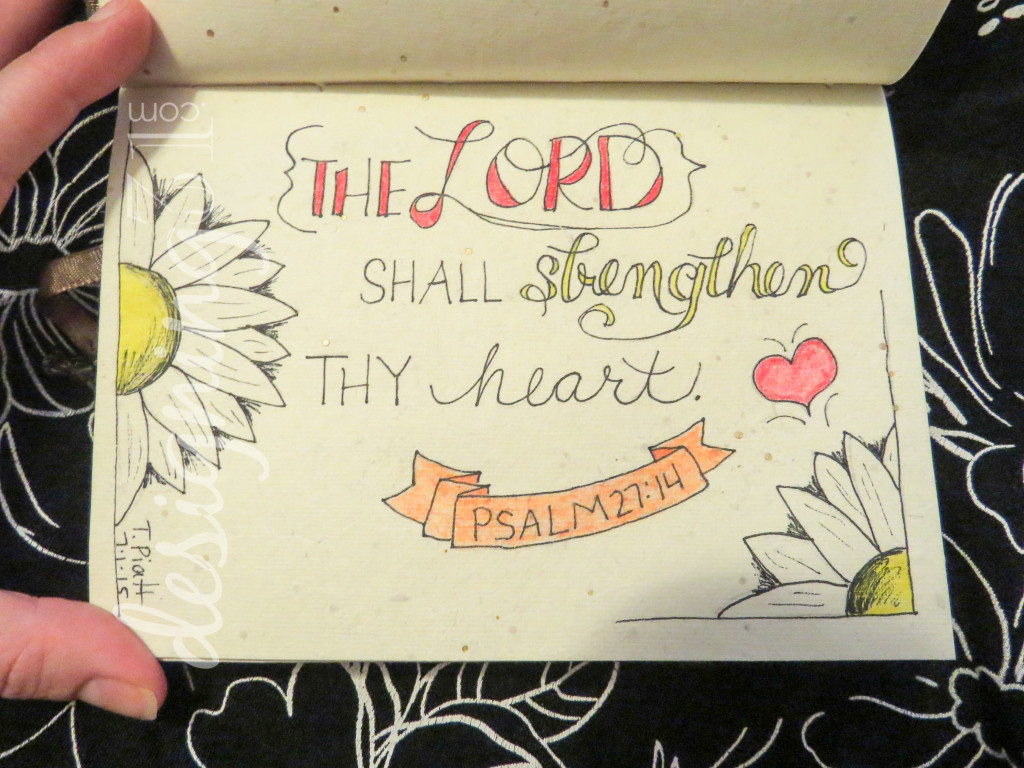 THE LORD
SHALL strengthen
THY heart.
PSALM 27:14
T. Piatt
7.1.15